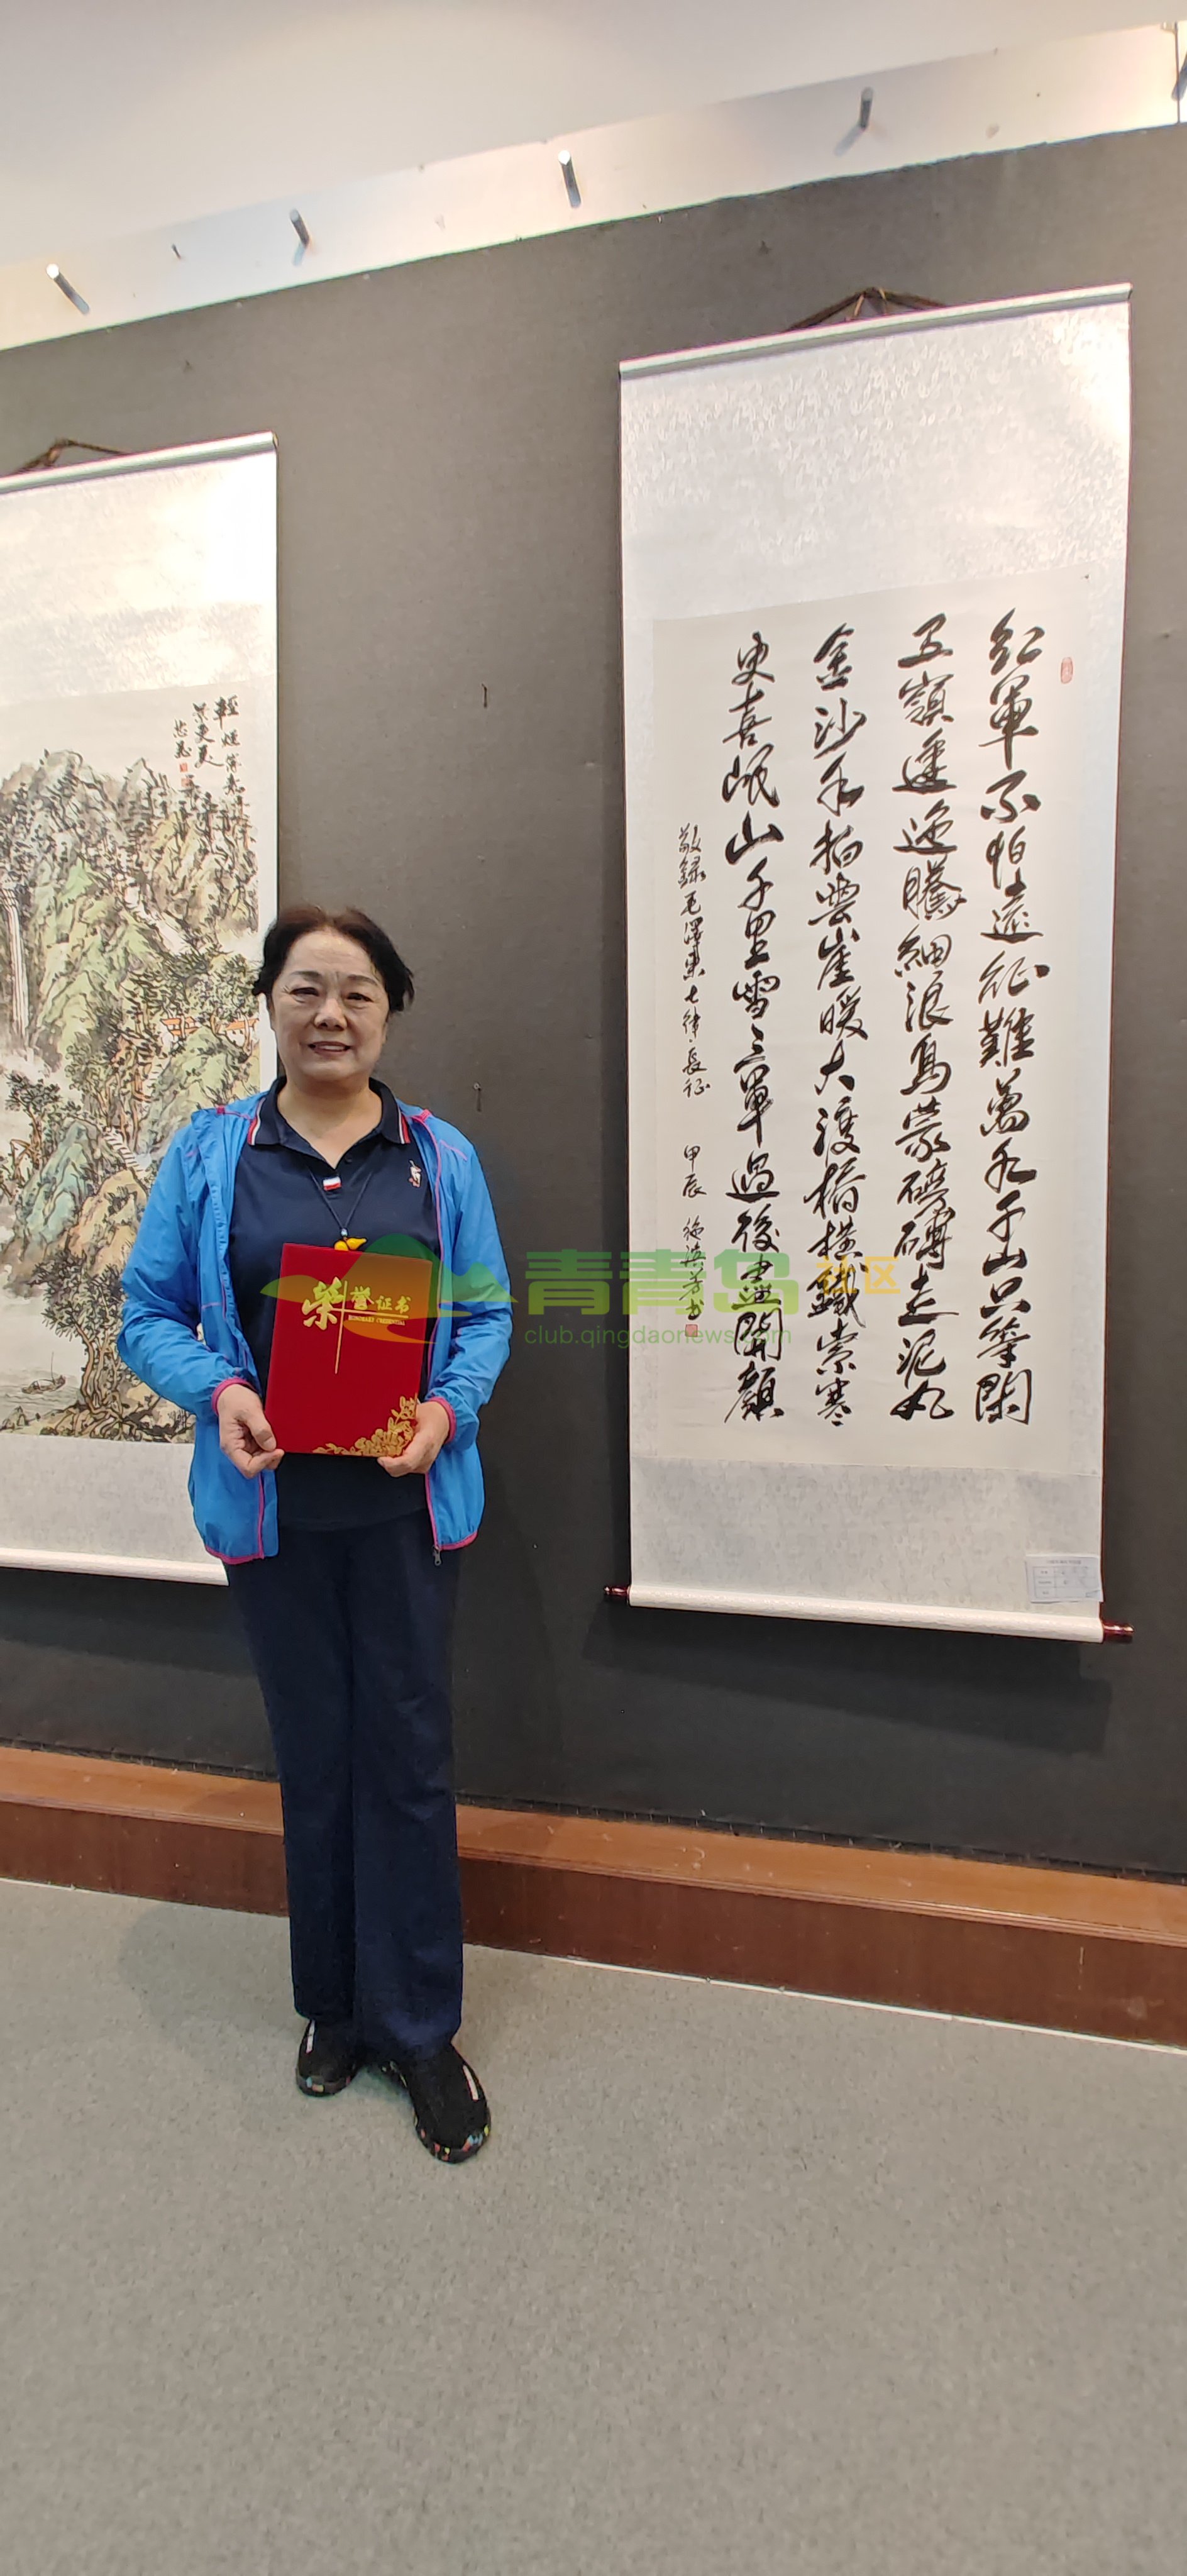 紅軍不怕遠征難萬水千山只等閑
五嶺逶迤騰細浪烏蒙磅礴走泥丸
金沙水拍雲崖暖大渡橋橫鐵索寒
更喜岷山千里雪三軍過後盡開顏
敬録毛澤東七律·長征 甲辰
輕煙
景更美
榮誉证书
HONORARY CREDENTIAL
青青岛社区
club.qingdaonews.com